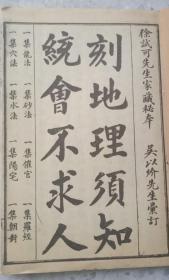 徐試可先生家藏秘本
吳以縉先生彙訂
刻地理須知
統會不求人
一集龍法　一集砂法　一集催官　一集羅經
一集穴法　一集水法　一集陽宅　一集朝對